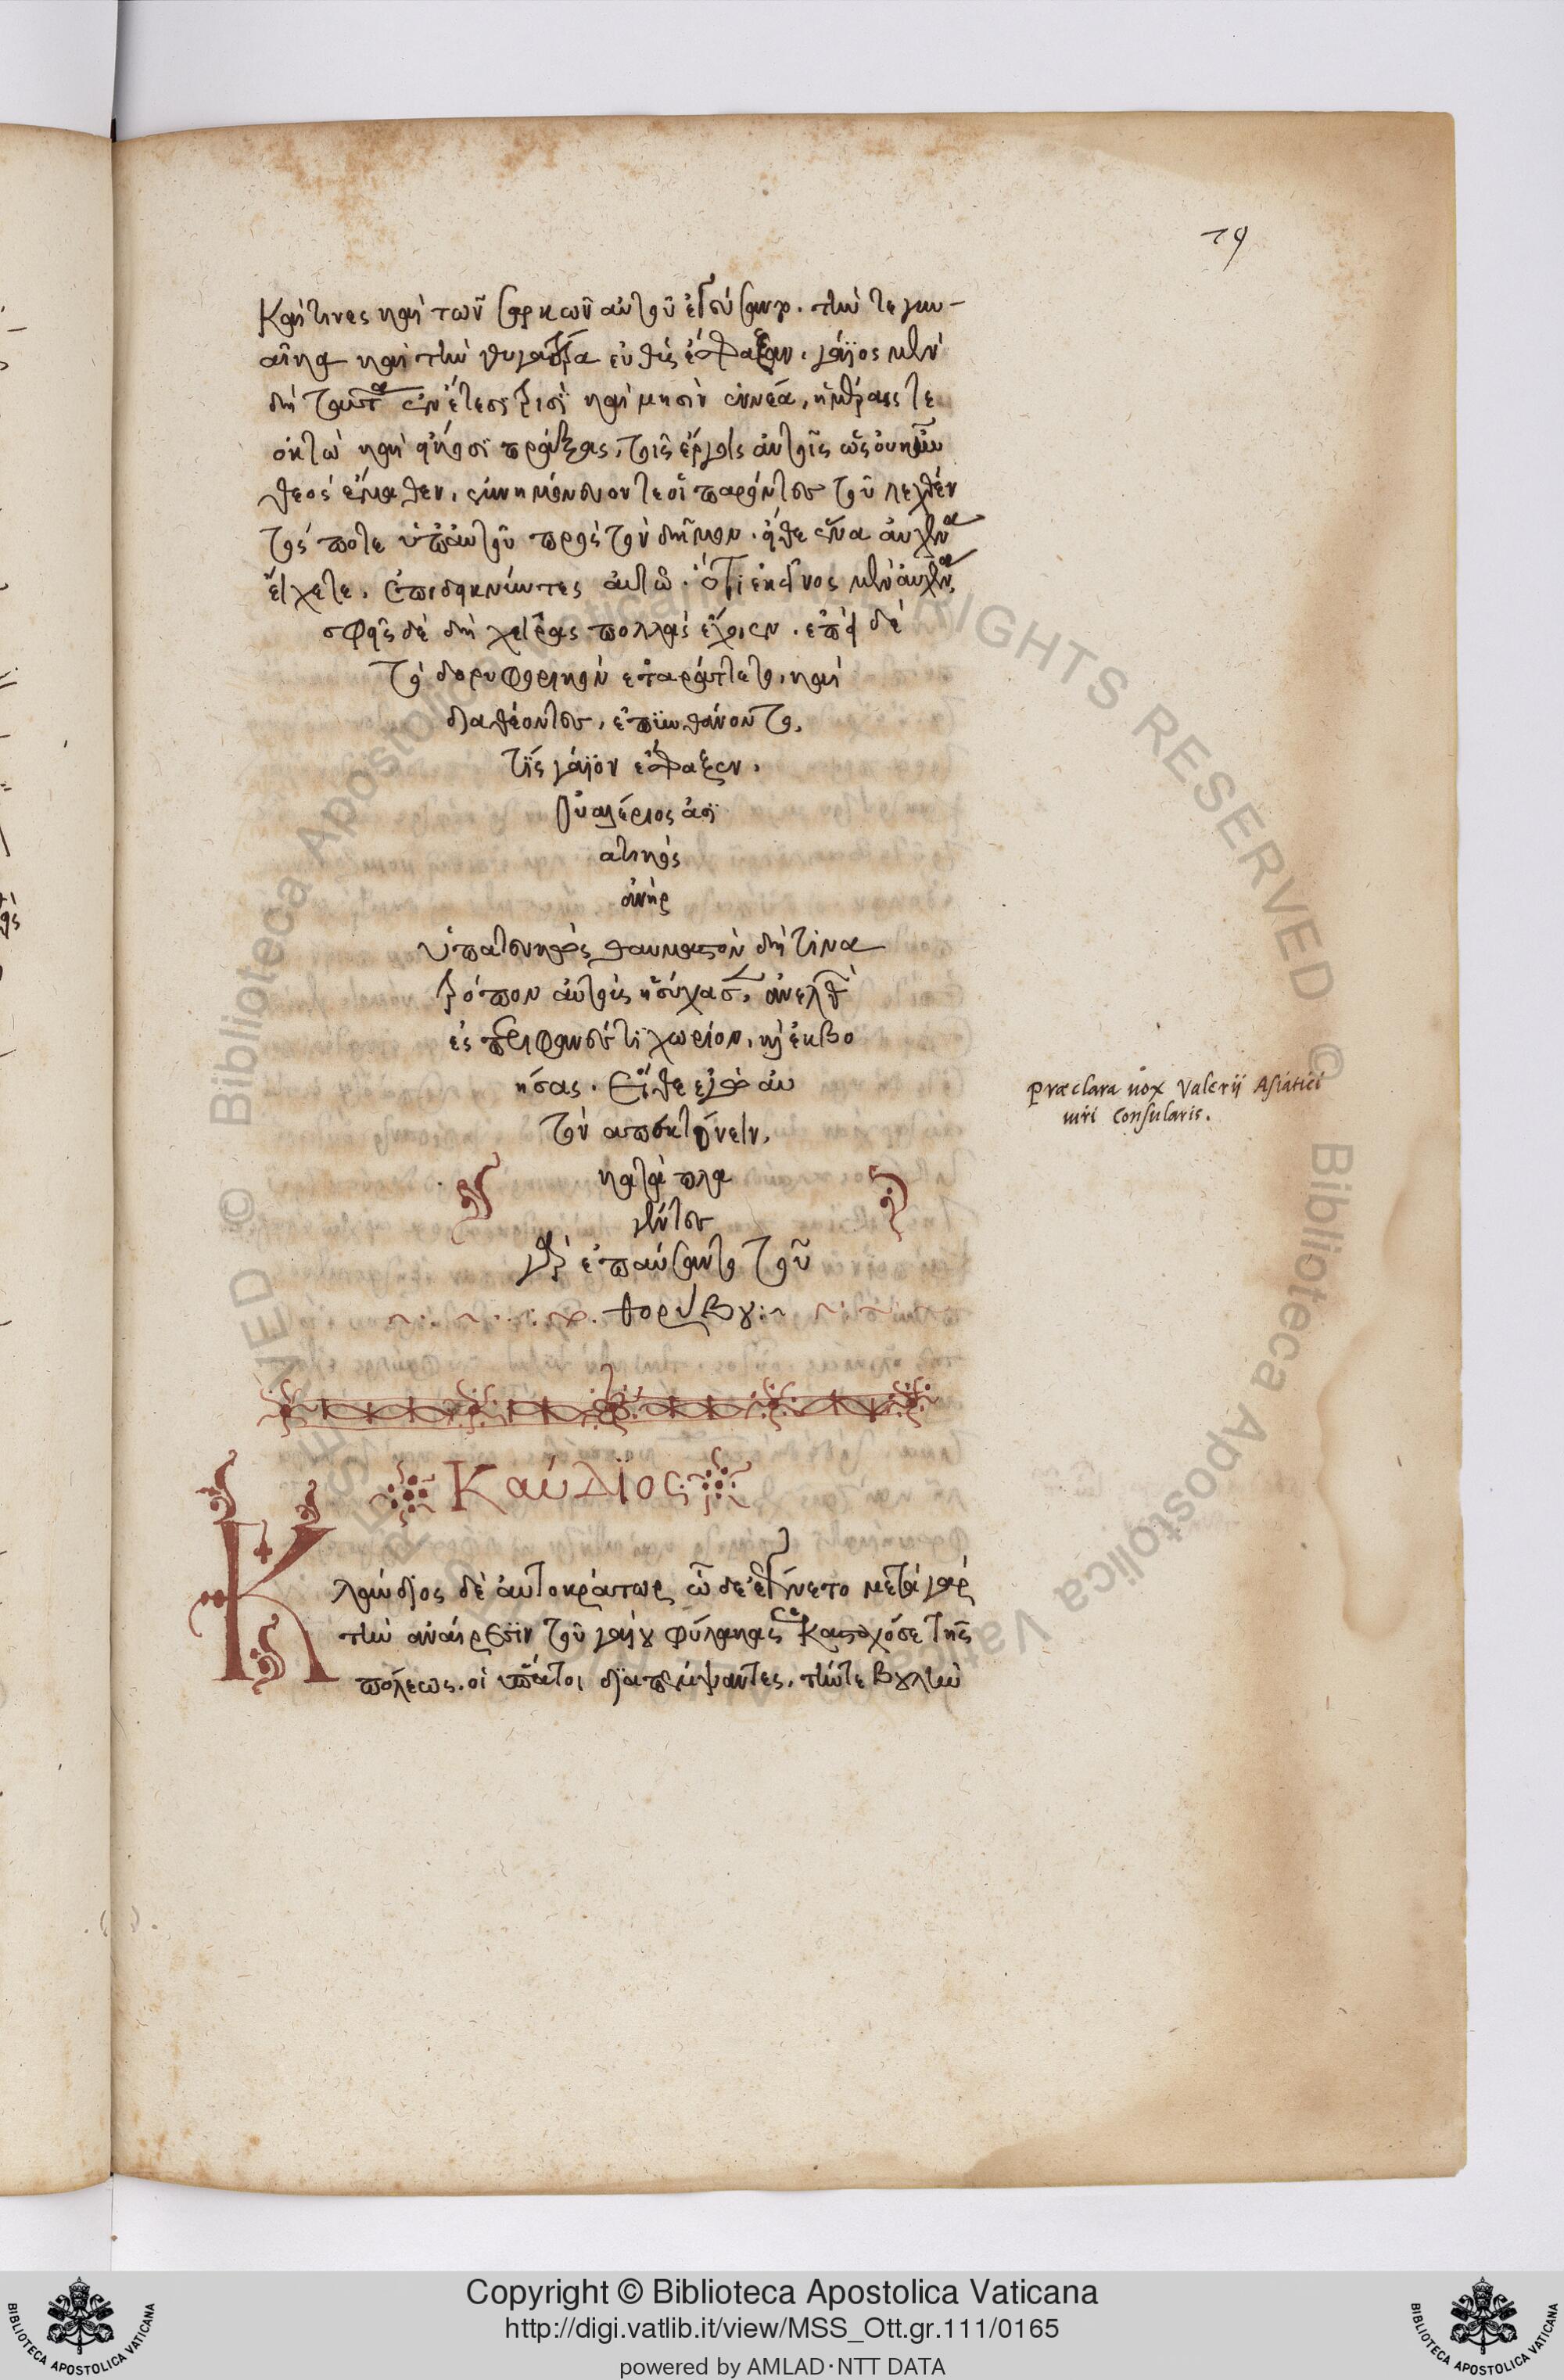 79
Καί τινες καὶ τῶν σαρκῶν αὐτοῦ ἐγεύσαντο. τὴν τε γυν-
αῖκα καὶ τὴν θυγατέρα εὐθὺς ἔσφαξαν. γάϊος μὲν
δὴ ταῦτα ἐν ἔτεσι τρισὶ καὶ μησὶν ἐννέα, ἡμέραις τε
ὀκτὼ καὶ εἴκοσι πράξας, τοῖς ἔργοις αὐτοῖς ὡς οὐκ ἦν
θεός ἔμαθεν.
τός ποτε ὑπ' αὐτοῦ πρὸς τὸν δῆμον. εἴθε ἕνα αὐχένα
εἴχετε. ἐπιδεικνύντες αὐτῷ. ὅτι ἐκεῖνος μὲν αὐχένα,
σφεῖς δὲ δὴ χεῖρας πολλὰς ἔχοιεν. ἐπεὶ δὲ
τὸ δορυφορικὸν ἐταράττετο, καὶ
διαθέοντες, ἐπυνθάνοντο,
τίς γάϊον ἔσφαξεν.
Οὐαλέριος ἀσι
ατικός
ἀνήρ
ὑπατευκὼς θαυμαστὸν δή τινα
τρόπον αὐτοὺς ἡσύχασε, ἀνελθὼν
ἐς περιφανές τι χωρίον, καὶ ἐκβο
ήσας. Εἴθε ἐγὼ αὐ
τὸν ἀπεκτόνειν,
καταπλα
γέντες
γὰρ ἐπαύσαντο τοῦ
θορύβου
præclara uox Valerij Asiatici
uiri Consularis.
Καύδϊος
Κλαύδιος δὲ αὐτοκράτωρ ὧδε ἐγένετο μετὰ γὰρ
τὴν ἀναίρεσιν τοῦ γαΐου φύλακας κατασχόσε τῆς
πόλεως. οἱ ὕπατοι διαπέμψαντες, τήν τε βουλὴν
© Biblioteca Apostolica Vaticana ALL RIGHTS RESERVED
Copyright © Biblioteca Apostolica Vaticana
http://digi.vatlib.it/view/MSS_Ott.gr.111/0165
powered by AMLAD·NTT DATA
BIBLIOTECA APOSTOLICA VATICANA
BIBLIOTECA APOSTOLICA VATICANA